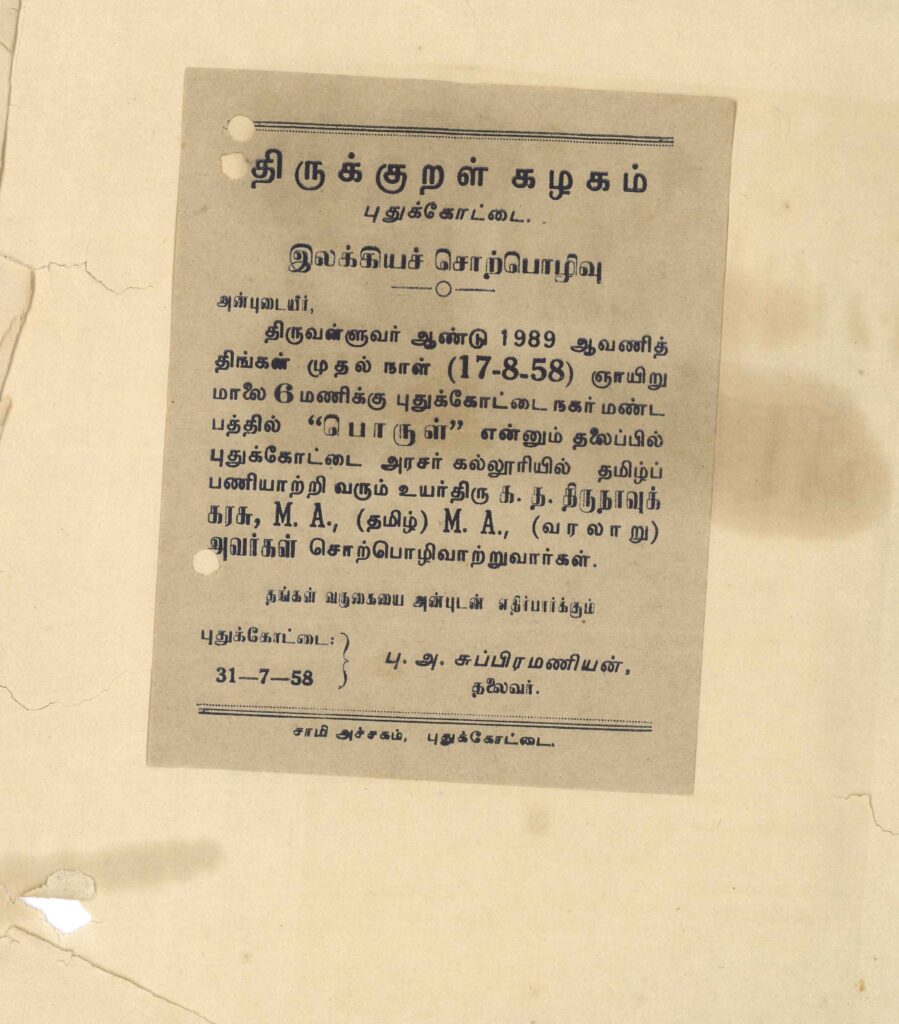 திருக்குறள் கழகம்
புதுக்கோட்டை.
இலக்கியச் சொற்பொழிவு
அன்புடையீர்,
திருவள்ளுவர் ஆண்டு 1989 ஆவணித்
திங்கள் முதல் நாள் (17-8-58) ஞாயிறு
மாலை 6 மணிக்கு புதுக்கோட்டை நகர் மண்ட
பத்தில் “பொருள்” என்னும் தலைப்பில்
புதுக்கோட்டை அரசர் கல்லூரியில் தமிழ்ப்
பணியாற்றி வரும் உயர்திரு க. த. திருநாவுக்
கரசு, M. A., (தமிழ்) M. A., (வரலாறு)
அவர்கள் சொற்பொழிவாற்றுவார்கள்.
தங்கள் வருகையை அன்புடன் எதிர்பார்க்கும்
புதுக்கோட்டை:
31—7—58
பு. அ. சுப்பிரமணியன்,
தலைவர்.
சாமி அச்சகம், புதுக்கோட்டை.